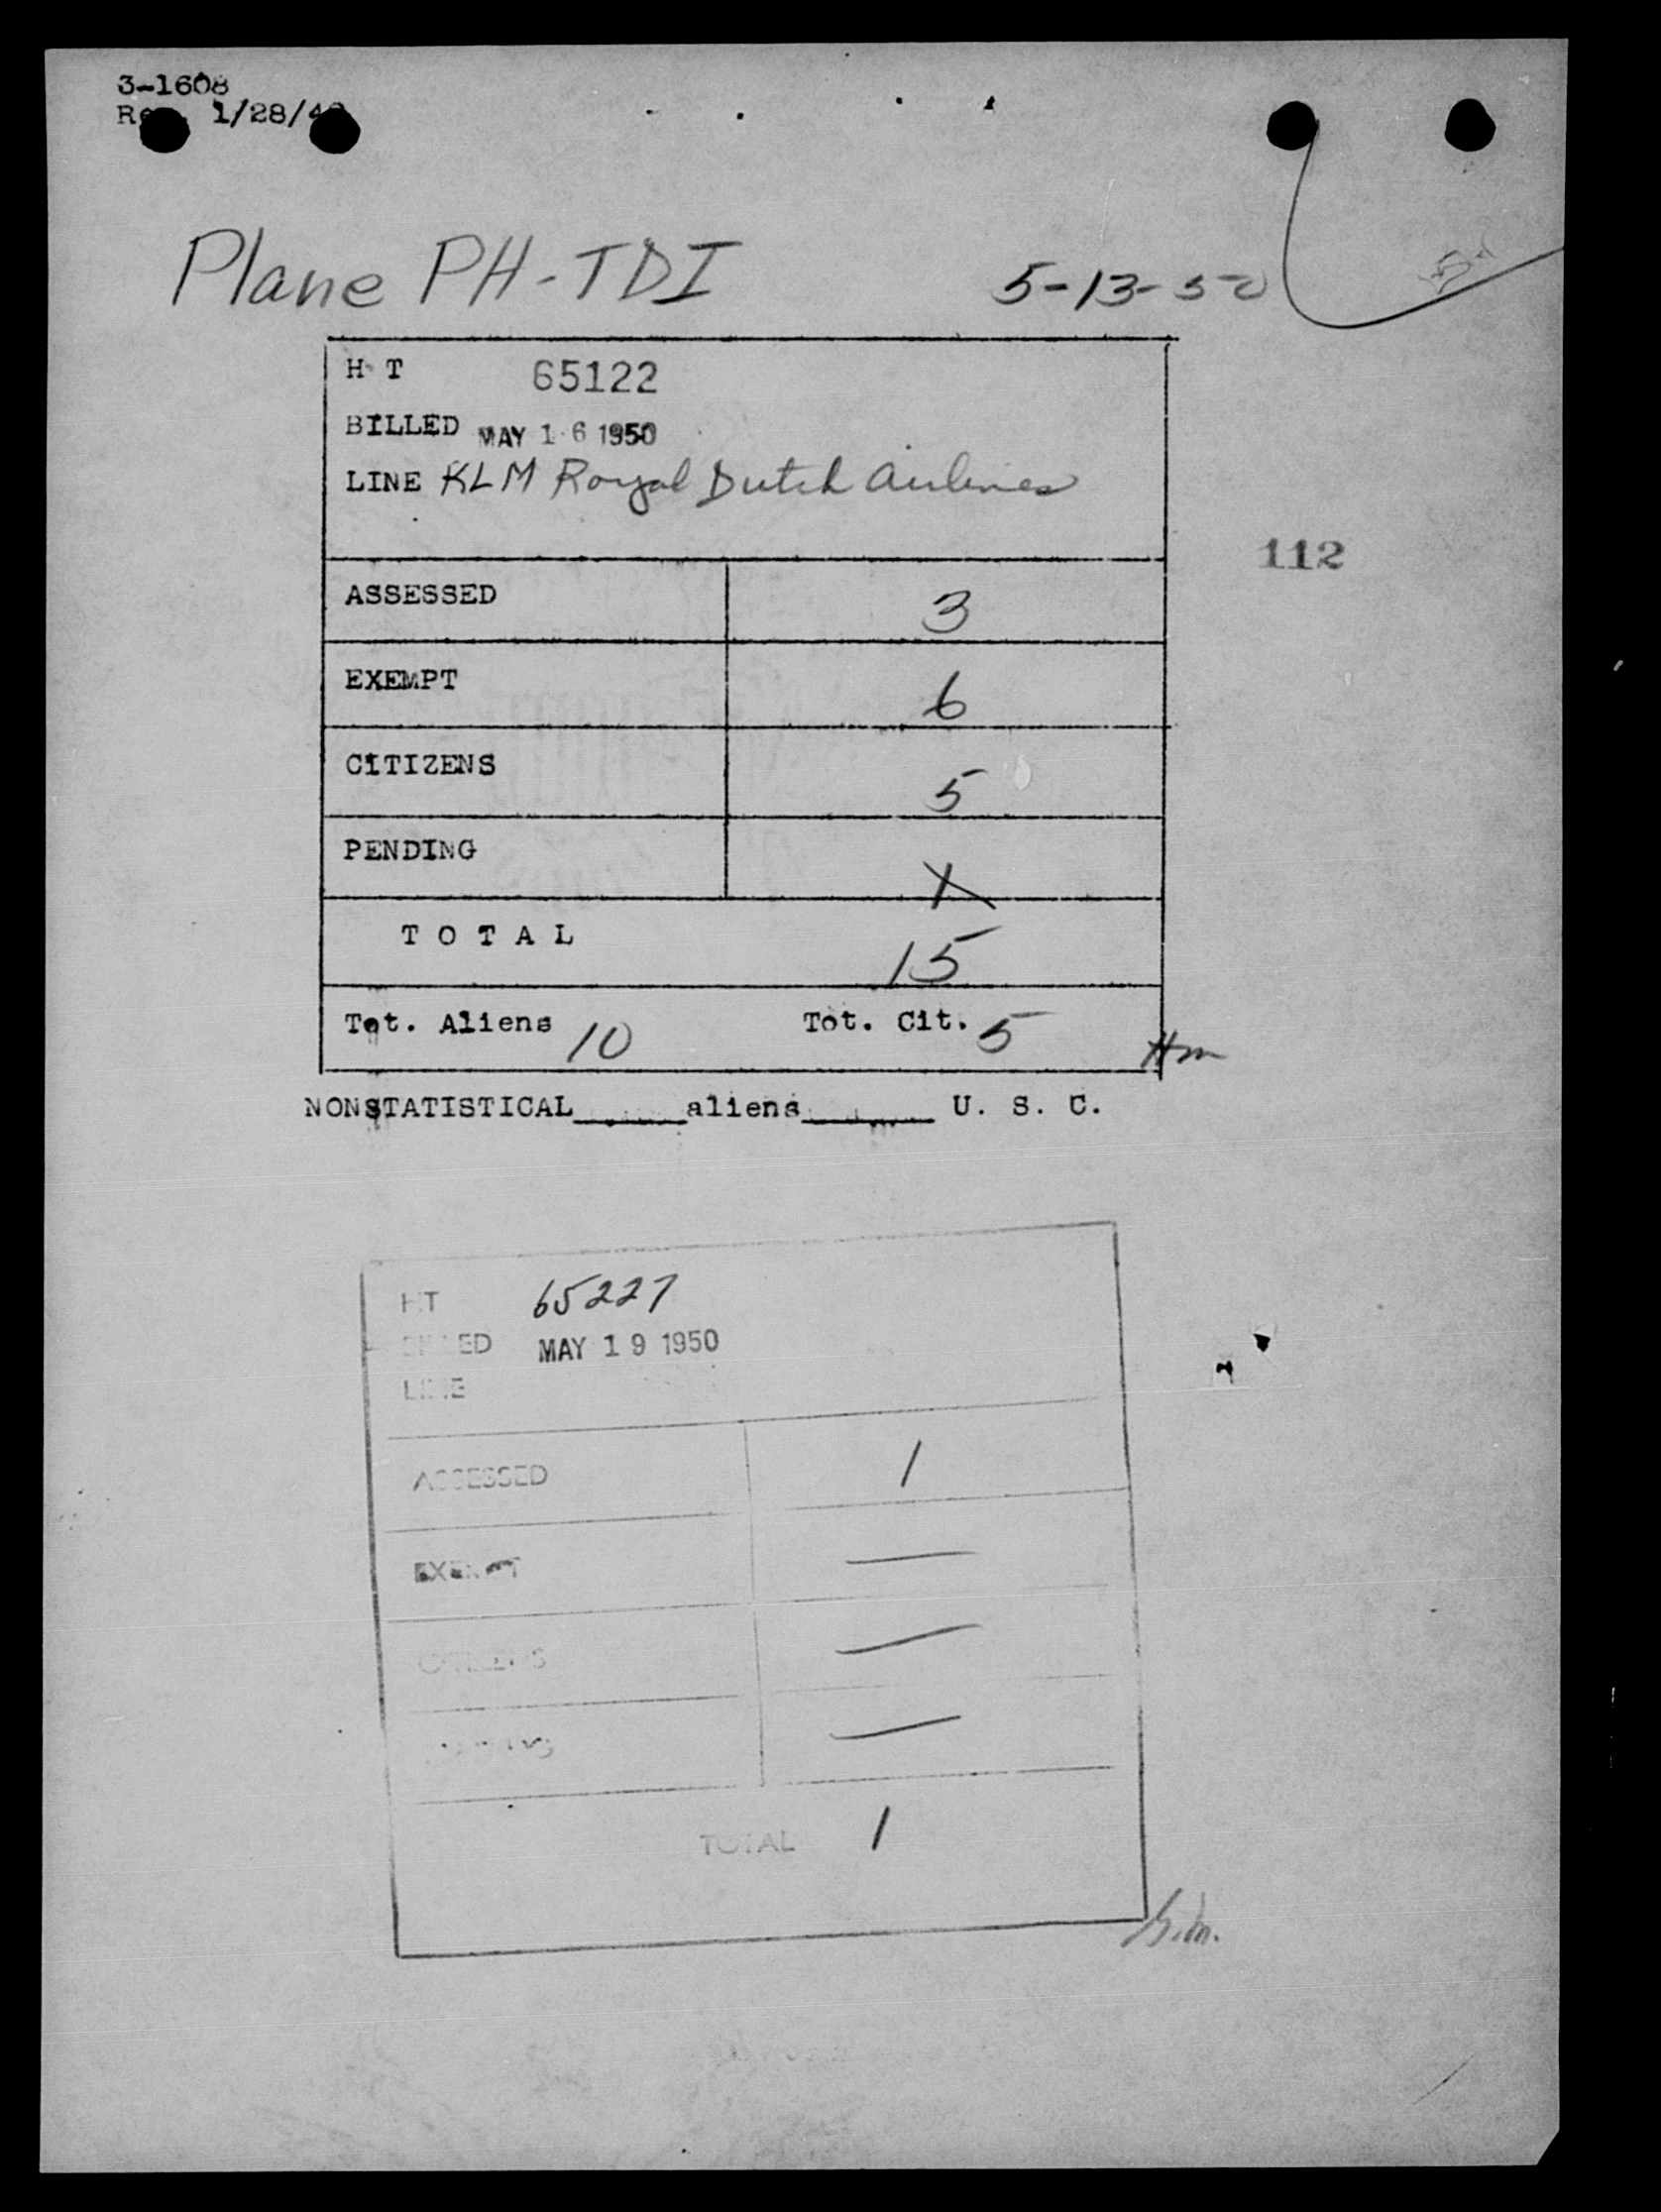 3-1608
1/28/
Plane PH-TDI 5-13-50
H T 65122
BILLED MAY 16 1950
LINE KLM Royal Dutch Airlines
112
ASSESSED 3
EXEMPT 6
CITIZENS 5
PENDING 1
TOTAL 15
Tot. Aliens 10 Tot. Cit. 5
Hm
NONSTATISTICAL aliens U. S. C.
HT 65227
BILLED MAY 19 1950
LINE
ASSESSED 1
EXEMPT —
CITIZENS —
PENDING —
TOTAL 1